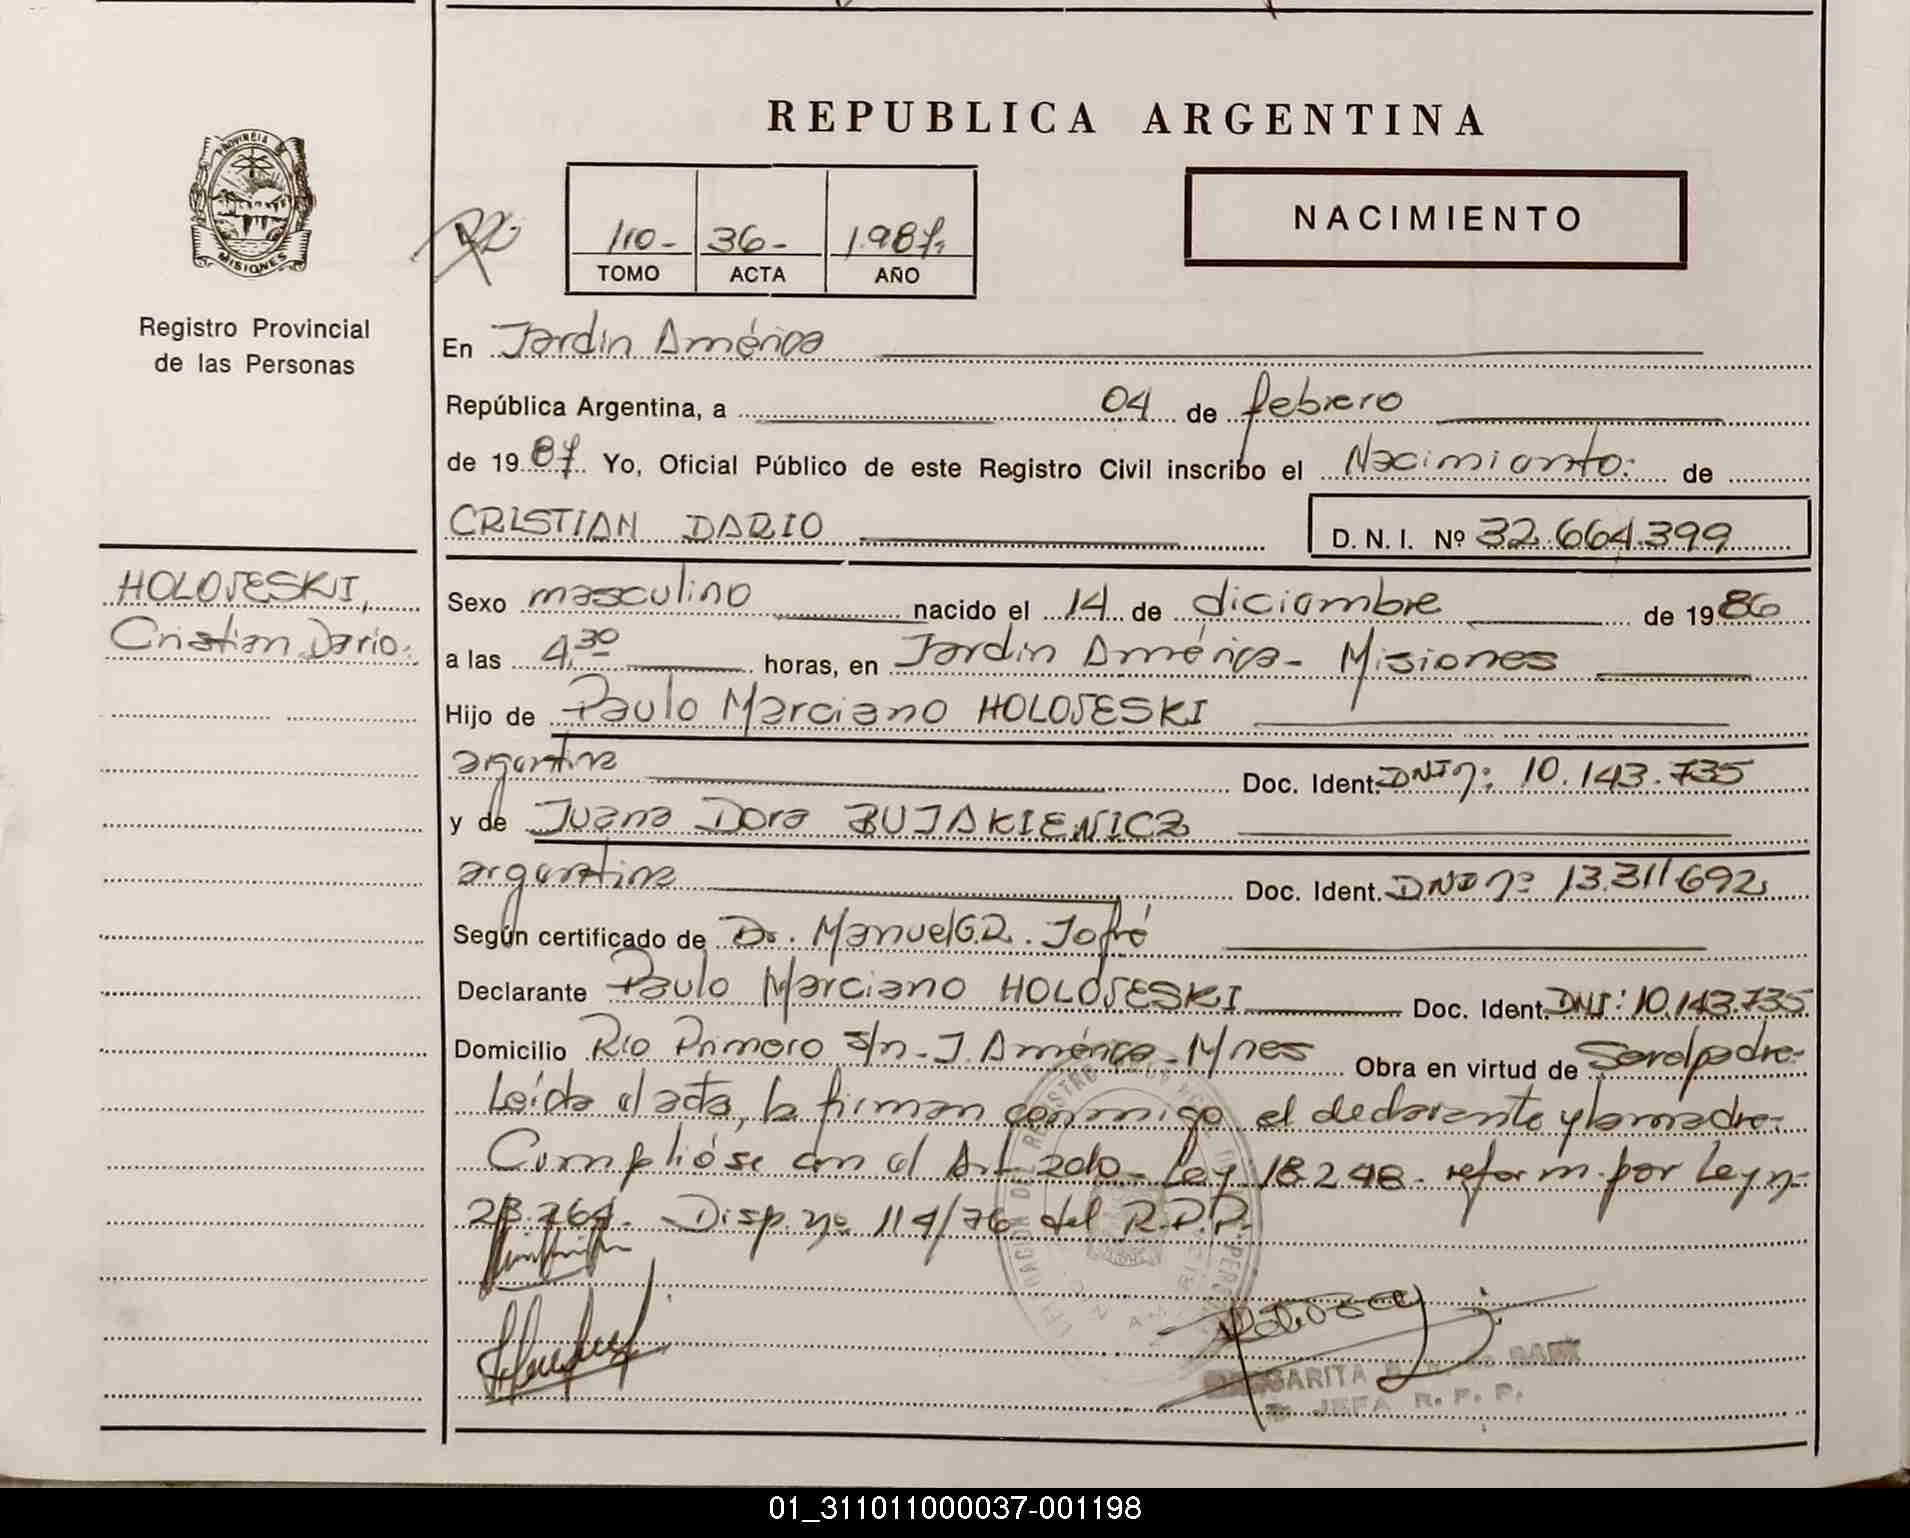 REPUBLICA ARGENTINA
PROVINCIA DE
MISIONES
Registro Provincial
de las Personas
110- 36- 1.987,
TOMO ACTA AÑO
NACIMIENTO
En Jardin América
República Argentina, a 04 de febrero
de 1987 Yo, Oficial Público de este Registro Civil inscribo el Nacimiento: de
CRISTIAN DARIO
D. N. I. Nº 32.664.399
HOLOJESKI,
Cristian Dario.
Sexo masculino nacido el 14 de diciembre de 1986
a las 4,30 horas, en Jardin América- Misiones
Hijo de Paulo Marciano HOLOJESKI
argentina Doc. Ident. DNI nº: 10.143.735
y de Juana Dora BUJAKIEWICZ
argentina Doc. Ident. DNI nº 13.311692,
Según certificado de Dr. Manuel G.R. Jofré
Declarante Paulo Marciano HOLOJESKI Doc. Ident. DNI: 10.143.735
Domicilio Rio Primero s/n- J. América- Mnes Obra en virtud de Ser el padre-
Leída el acta, la firman conmigo el declarante y la madre-
Cumplióse con el Art 2do- Ley 18248- reform. por Ley nº
23.264- Disp. nº 114/76 del R.P.P.
MARGARITA DE BANK
JEFA R. P. P.
01_311011000037-001198